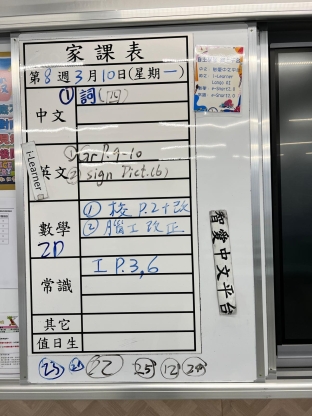 家課表
第8週3月10日(星期一)
中文
① 詞(四)
i-Learner
英文
① Gr P.9-10
② sign Dict.(6)
數學
2D
① 校 P.2+改
② 腦工改正
常識
工 P.3,6
其它
值日生
23 21 22 25 12 24
智愛中文平台